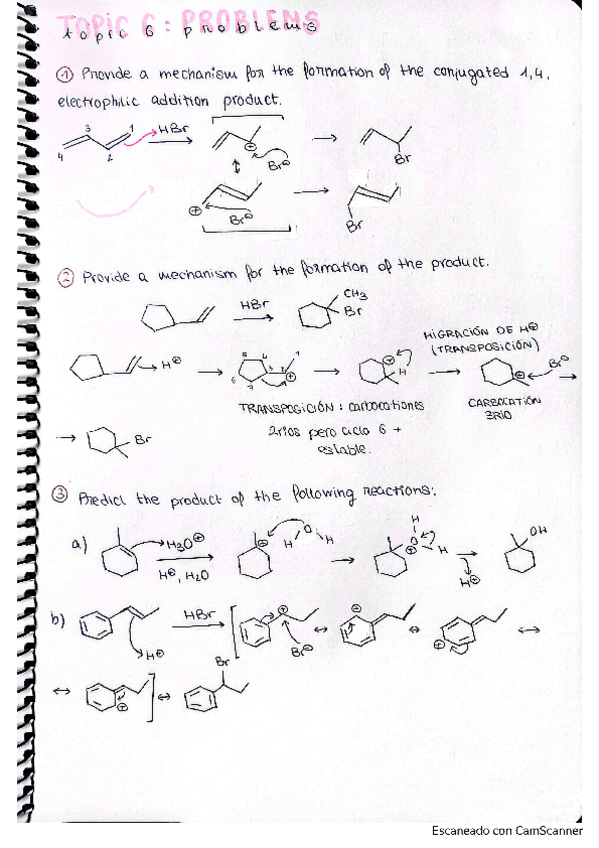 TOPIC 6: PROBLEMS
topic 6 problems
① Provide a mechanism for the formation of the conjugated 1,4.
electrophilic addition product.
3 1 HBr
4 2
⊕ Br⊖ Br
⊕ Br⊖ Br
② Provide a mechanism for the formation of the product.
HBr CH3
Br
MIGRACIÓN DE H⊕
(TRANSPOSICIÓN)
H⊕ 5 4 3 2 1 6 ⊕ ⊕ H ⊕ Br⊖
TRANSPOSICIÓN: carbocationes
2rios pero ciclo 6 +
estable.
CARBOCATIÓN
3RIO
Br
③ Predict the product of the following reactions:
a) H3O⊕ ⊕ H O H H O⊕ H OH
H⊕, H2O H⊕
b) HBr ⊕ Br⊖ ⊕ ⊕
H⊕
Br
⊕
Escaneado con CamScanner